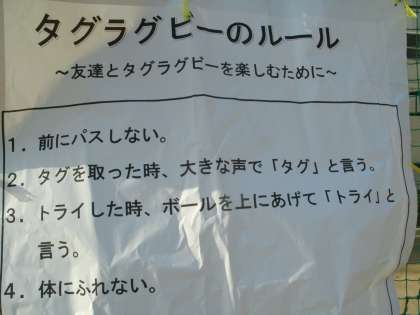 タグラグビーのルール
～友達とタグラグビーを楽しむために～
1．前にパスしない。
2．タグを取った時、大きな声で「タグ」と言う。
3．トライした時、ボールを上にあげて「トライ」と
言う。
4．体にふれない。